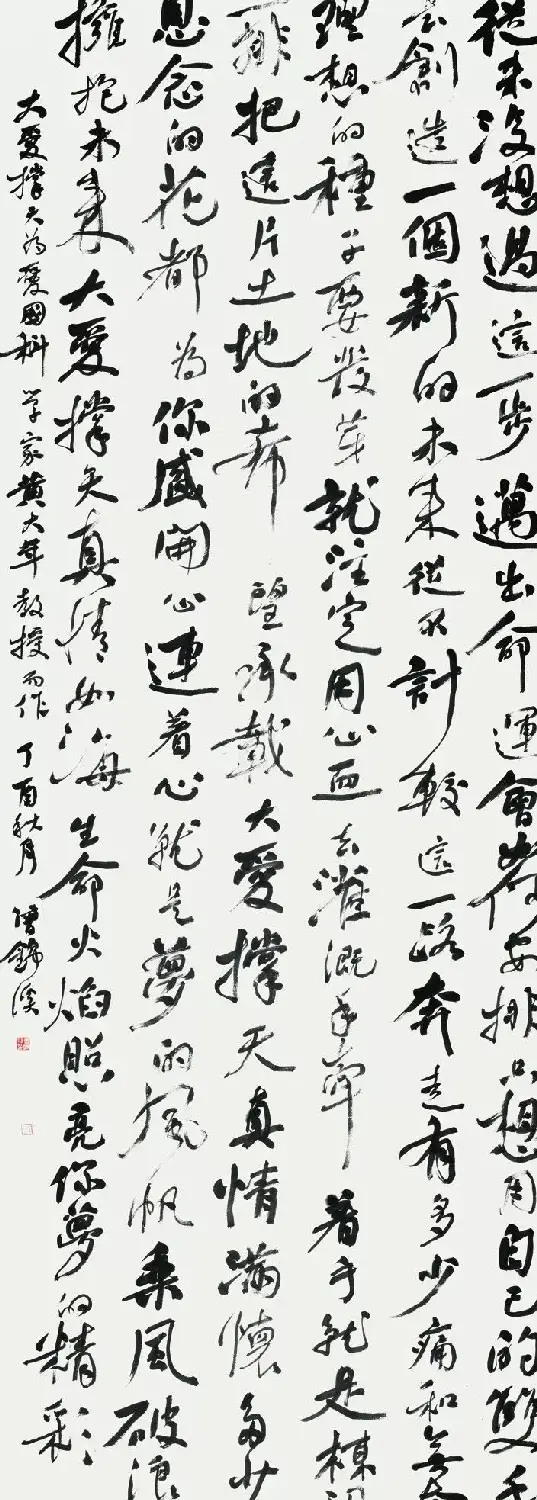 從來沒想過這一步邁出命運會安排只想用自己的雙手
去創造一個新的未來從不計較這一路奔走有多少痛和無
理想的種子要發芽就注定用心血去灌溉手牽着手就是棵
一排把這片土地的希望承載大愛撐天真情滿懷多少
思念的花都為你盛開心連着心就是夢的風帆乘風破浪
擁抱未來大愛撐天真情如海生命火焰照亮你夢的精彩
大愛撐天為愛國科学家黃大年教授而作丁酉秋月錦溪